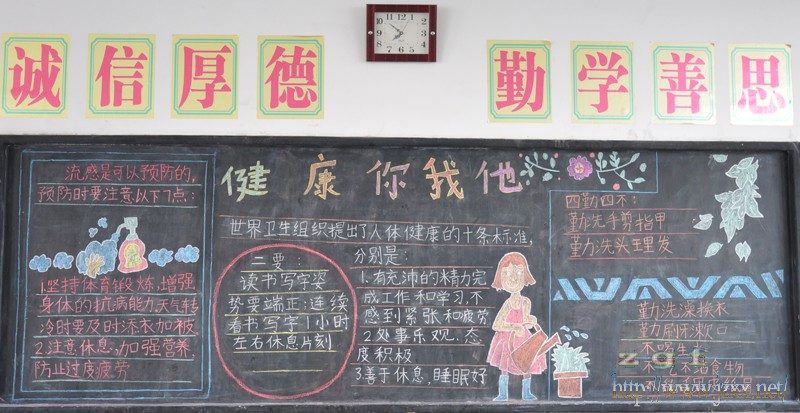 诚信厚德 勤学善思
健康你我他
流感是可以预防的,
预防时要注意以下7点:
1.坚持体育锻炼,增强
身体的抗病能力,天气转
冷时要及时添衣加被
2.注意休息,加强营养
防止过度疲劳
世界卫生组织提出了人体健康的十条标准,
分别是:
1.有充沛的精力完
成工作和学习,不
感到紧张和疲劳
2.处事乐观,态
度积极
3善于休息,睡眠好
二要:
读书写字姿
势要端正;连续
看书写字1小时
左右休息片刻
四勤四不:
勤洗手剪指甲
勤洗头理发
勤洗澡换衣
勤刷牙漱口
不喝生水
不吃不洁食物